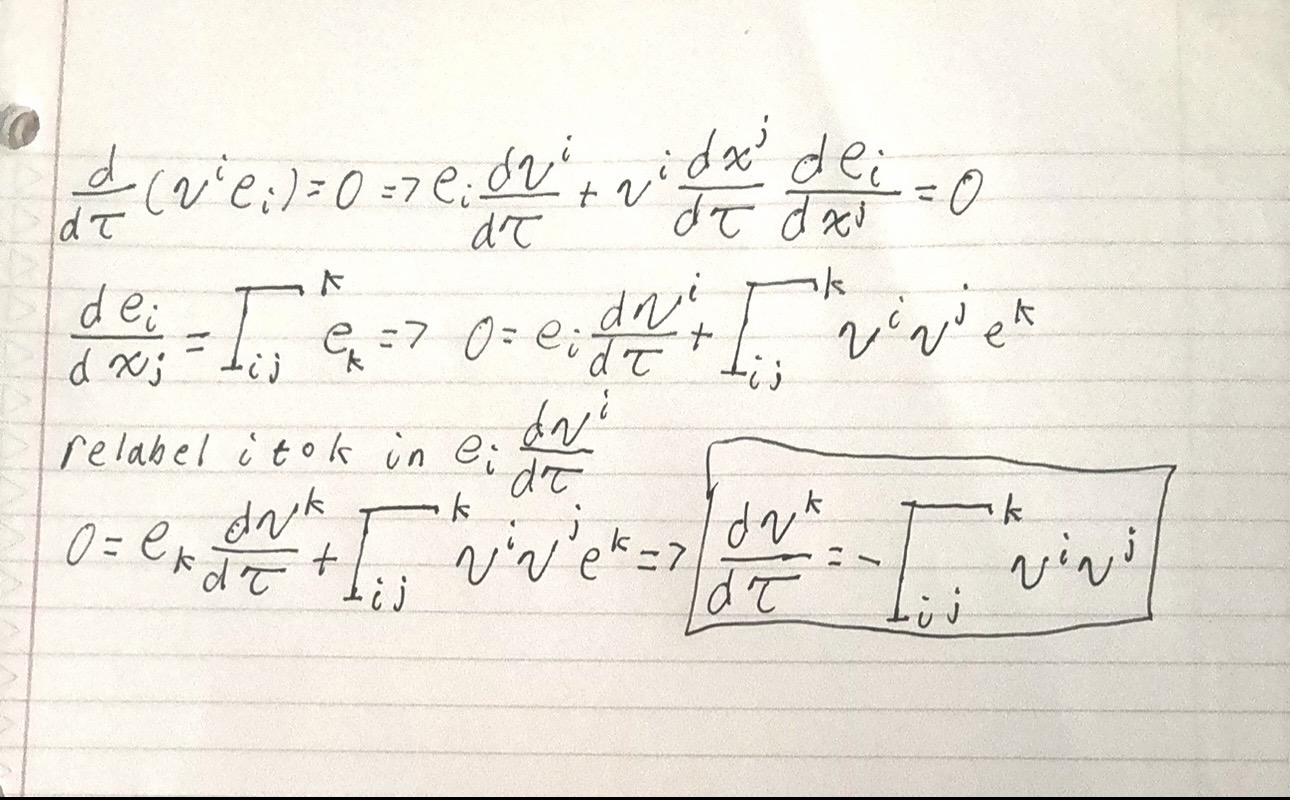 d/dτ (vⁱeᵢ) = 0 => eᵢ dvⁱ/dτ + vⁱ dxʲ/dτ deᵢ/dxʲ = 0
deᵢ/dxⱼ = Γᵢⱼᵏ eₖ => 0 = eᵢ dvⁱ/dτ + Γᵢⱼᵏ vⁱvʲeᵏ
relabel i to k in eᵢ dvⁱ/dτ
0 = eₖ dvᵏ/dτ + Γᵢⱼᵏ vⁱvʲeᵏ => dvᵏ/dτ = - Γᵢⱼᵏ vⁱvʲ